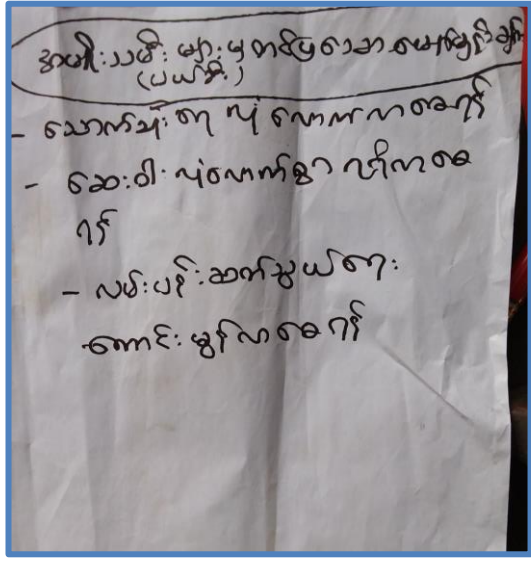 အမျိုးသမီးများမှတင်ပြသောမျှော်မှန်းချက်
(ပယ်ဒီး)
- သောက်သုံးရေ လုံလောက်လာစေရန်
- ဆေးဝါးလုံလောက်စွာ ရှိလာစေ
ရန်
- လမ်းပန်းဆက်သွယ်ရေး
ကောင်းမွန်လာစေရန်